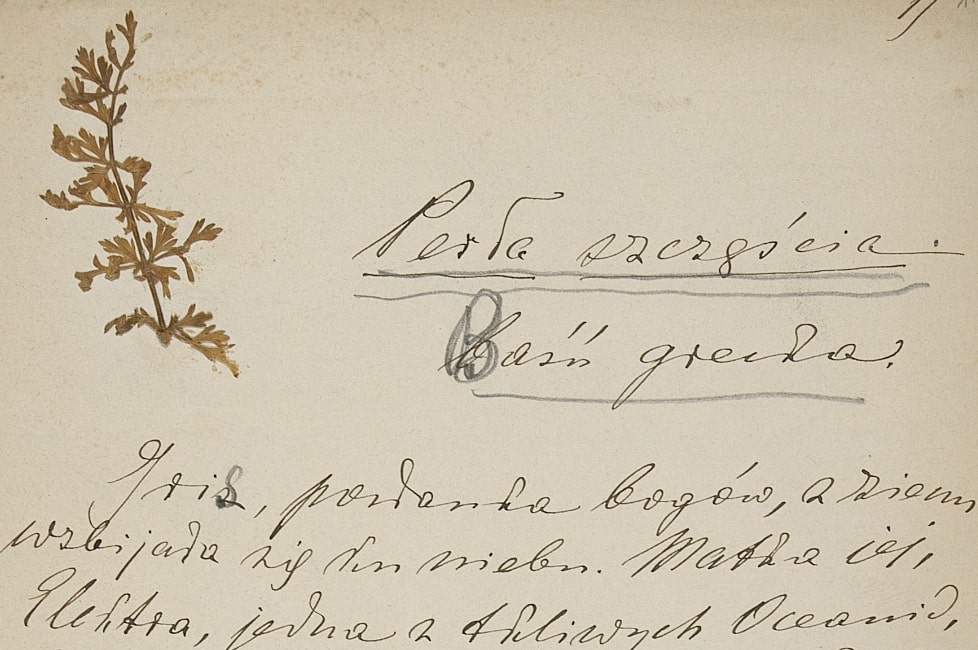 Perła szczęścia.
Baśń grecka.
Iris, posłanka bogów, z ziemi
wzbijała się ku niebu. Matka jej,
Elektra, jedna z tkliwych Oceanid,